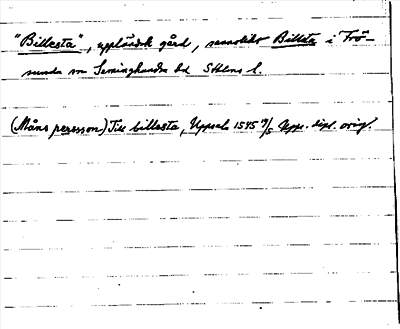 "Billesta", uppländsk gård, sannolikt Billsta i Frö-
sunda sn Seminghundra hd Sthlms l.
(Måns persson) Till billesta, Uppsala 1545 9/5 Upps. dipl. orig.